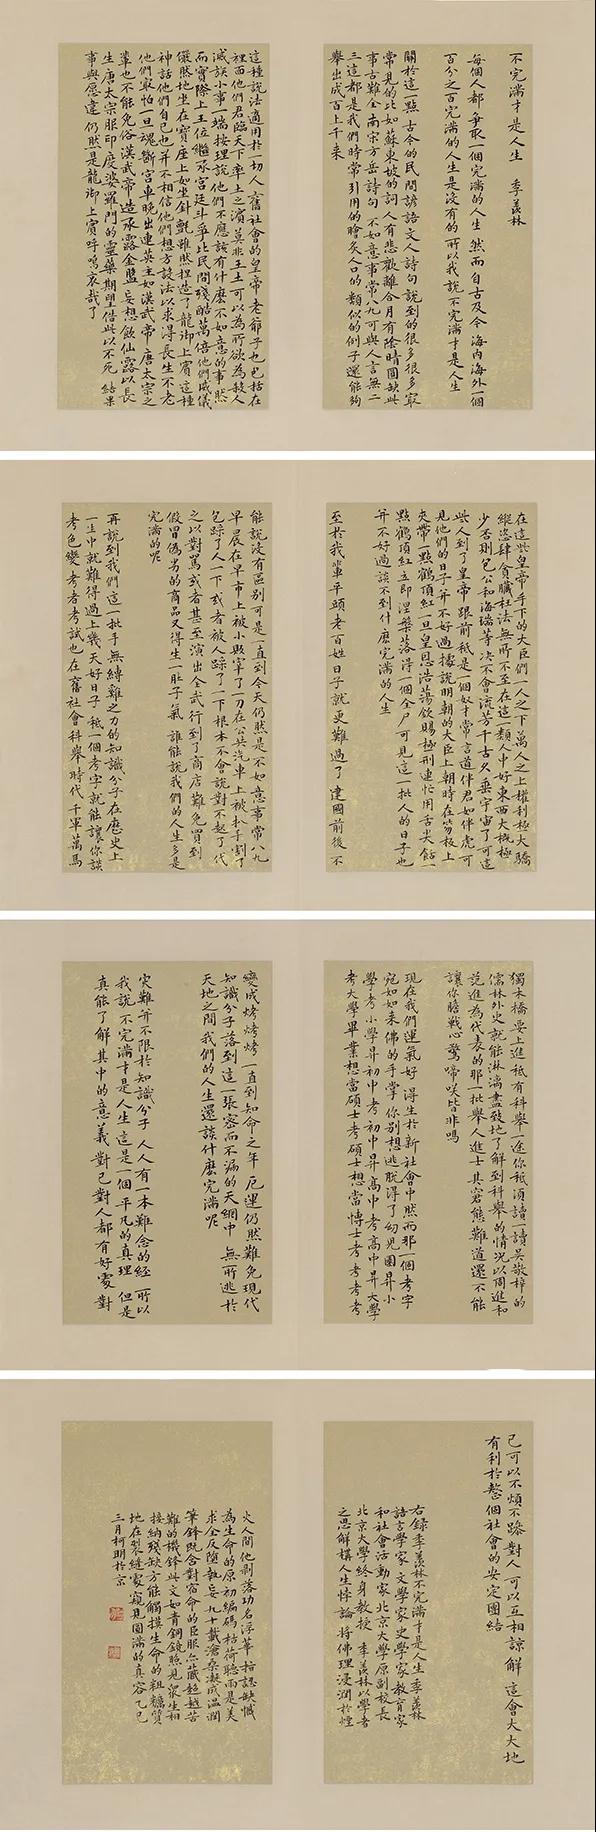 不完滿才是人生 季羨林
每個人都爭取一個完滿的人生 然而 自古及今 海內海外一個
百分之百完滿的人生是沒有的 所以我說 不完滿才是人生
關於這一點 古今的民間諺語文人詩句說到的很多很多 最
常見的比如蘇東坡的詞 人有悲歡離合月有陰晴圓缺此
事古難全 南宋方岳詩句 不如意事常八九可與人言無二
三這都是我們時常引用的膾炙人口的類似的例子還能夠
舉出成百上千來
這種說法適用於一切人舊社會的皇帝老爺子也包括在
裡面他們君臨天下率土之濱莫非王土可以為所欲為殺人
滅族小事一端按理說他們不應該有什麼不如意的事 然
而實際上王位繼承宮廷斗爭比民間殘酷萬倍他們威儀
儼然地坐在寶座上如坐針氈雖然捏造了龍御上賓這種
神話他們自己也并不相信他們想方設法以求得長生不老
他們最怕一旦魂斷宮車晚出連英主如漢武帝唐太宗之
輩也不能免俗漢武帝造承露金盤妄想飲仙露以長
生唐太宗服印度婆羅門的靈藥期望借此以不死 結果
事與愿違仍然是龍御上賓呼嗚哀哉了
在這些皇帝手下的大臣們一人之下萬人之上權利極大驕
縱恣肆貪贓枉法無所不至在這一類人中好東西大概極
少否則包公和海瑞等決不會流芳千古久垂宇宙了可這
些人到了皇帝跟前祗是一個奴才常言道伴君如伴虎可
見他們的日子并不好過據說明朝的大臣上朝時在笏板上
夾帶一點鶴頂紅一旦皇恩浩蕩欽賜極刑連忙用舌尖舔一
點鶴頂紅立即涅槃落得一個全尸可見這一批人的日子也
并不好過談不到什麼完滿的人生
至於我輩平頭老百姓日子就更難過了建國前後不
能說沒有區別可是一直到今天仍然是不如意事常八九
早晨在早市上被小販宰了一刀在公共汽車上被扒手割了
包踩了人一下或者被人踩了一下根本不會說對不起了代
之以對罵或者甚至演出全武行到了商店難免買到
假冒偽劣的商品又得生一肚子氣誰能說我們的人生多是
完滿的呢
再說到我們這一批手無縛雞之力的知識分子在歷史上
一生中就難得過上幾天好日子祗一個考字就能讓你談
考色變考者考試也在舊社會科舉時代千軍萬馬
獨木橋要上進祗有科舉一途你祗須讀一讀吳敬梓的
儒林外史就能淋漓盡致地了解到科舉的情況以周進和
范進為代表的那一批舉人進士其窘態難道還不能
讓你膽戰心驚啼笑皆非嗎
現在我們運氣好得生於新社會中然而那一個考字
宛如如來佛的手掌你別想逃脫得了幼兒園昇小
學考小學昇初中考初中昇高中考高中昇大學
考大學畢業想當碩士考碩士想當博士考考考考
變成烤烤烤一直到知命之年厄運仍然難免現代
知識分子落到這一張密而不漏的天網中無所逃於
天地之間我們的人生還談什麼完滿呢
災難并不限於知識分子人人有一本難念的經所以
我說不完滿才是人生這是一個平凡的真理但是
真能了解其中的意義對己對人都有好處對
己可以不煩不躁對人可以互相諒解這會大大地
有利於整個社會的安定團結
右錄季羨林不完滿才是人生季羨林
語言學家文學家史學家教育家
和社會活動家北京大學原副校長
北京大學終身教授季羨林以學者
之思解構人生悖論將佛理浸潤於煙
火人間他剝落功名浮華指認缺憾
為生命的原初編碼枯荷聽雨是美
求全反墮執妄九十載滄桑凝成溫潤
筆鋒既含對宿命的臣服亦藏超越苦
難的機鋒此文如青銅鏡照見眾生相
接納殘缺方能觸摸生命的粗糲質
地在裂縫處窺見圓滿的真容乙巳
三月柯明於京